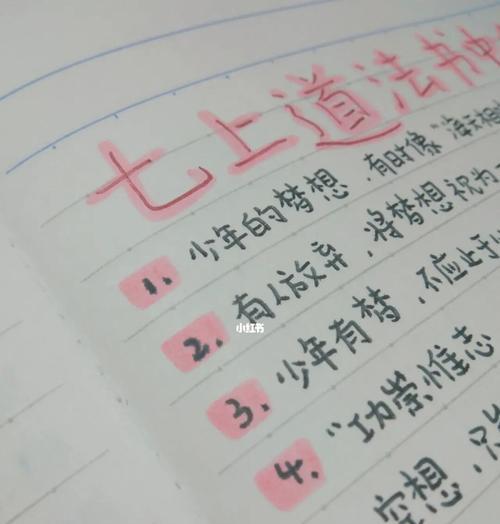 七上道法书中
1. 少年的梦想，有时像"海天相
2. 有人放弃，将梦想视为
3. 少年有梦，不应止于
4. "功崇惟志
空想，只
小红书